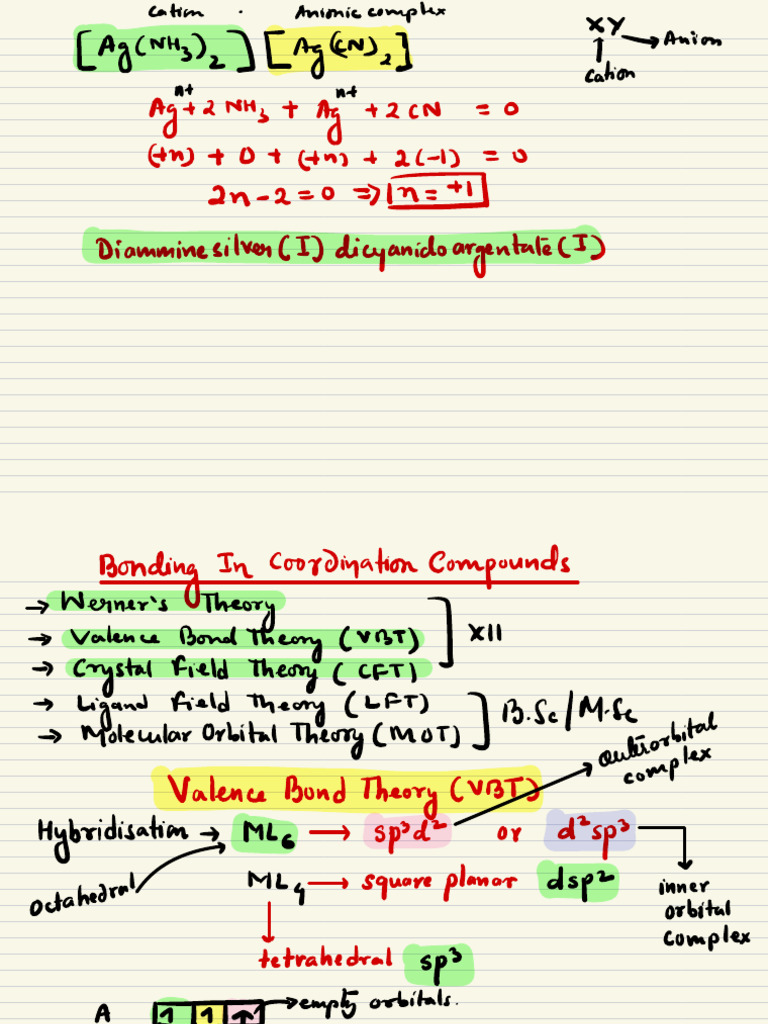 cation . Anionic complex
[Ag(NH3)2] [Ag(CN)2]
XY → Anion
cation
Ag^n+ + 2 NH3 + Ag^n+ + 2 CN = 0
(+n) + 0 + (+n) + 2(-1) = 0
2n - 2 = 0 ⇒ n = +1
Diammine silver (I) dicyanido argentate (I)
Bonding In Coordination Compounds
→ Werner's Theory
→ Valence Bond Theory (VBT)
→ Crystal Field Theory (CFT)
XII
→ Ligand Field Theory (LFT)
→ Molecular Orbital Theory (MOT)
B.Sc/M.Sc
Valence Bond Theory (VBT)
outerorbital
complex
Hybridisation → ML6 → sp3d2 or d2sp3
Octahedral
ML4 → square planar dsp2
inner
orbital
complex
tetrahedral sp3
A 1 1 ↑ → empty orbitals.